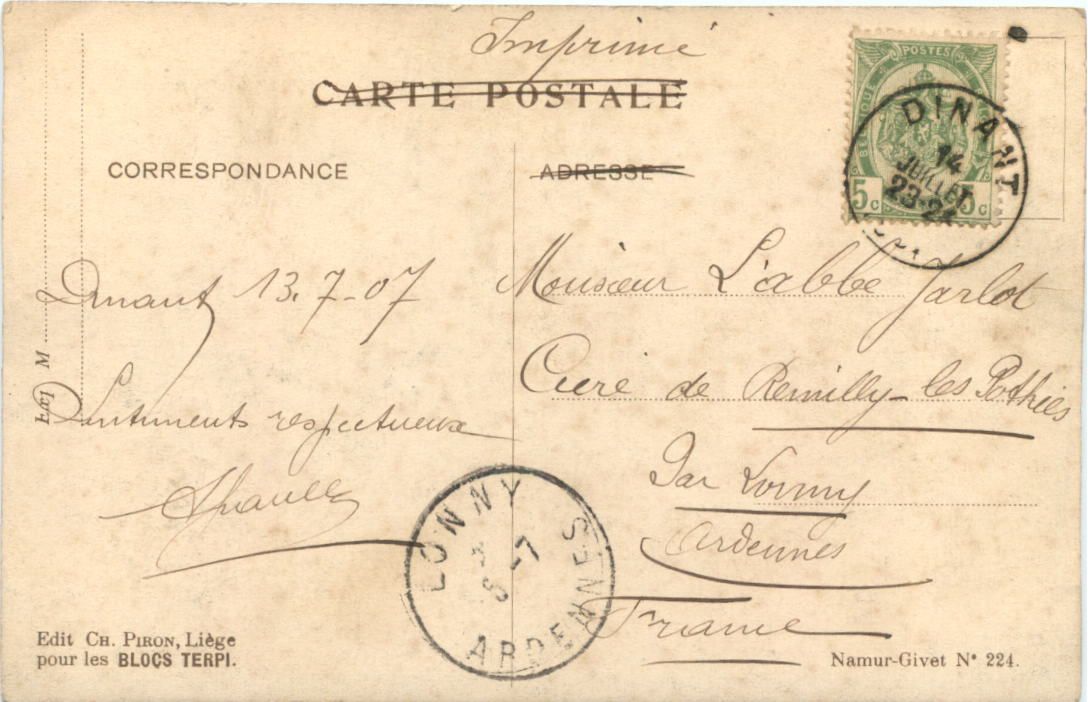 Imprimé
CARTE POSTALE
CORRESPONDANCE
ADRESSE
POSTES
5c 5c
DINANT
14
JUILLET
23-24
Dinant 13.7-07
Sentiments respectueux
Monsieur L'abbé Jarlot
Curé de Remilly-les Pothées
Par Lonny
Ardennes
France
LONNY
ARDENNES
M
Edit CH. PIRON, Liège
pour les BLOCS TERPI.
Namur-Givet N° 224.